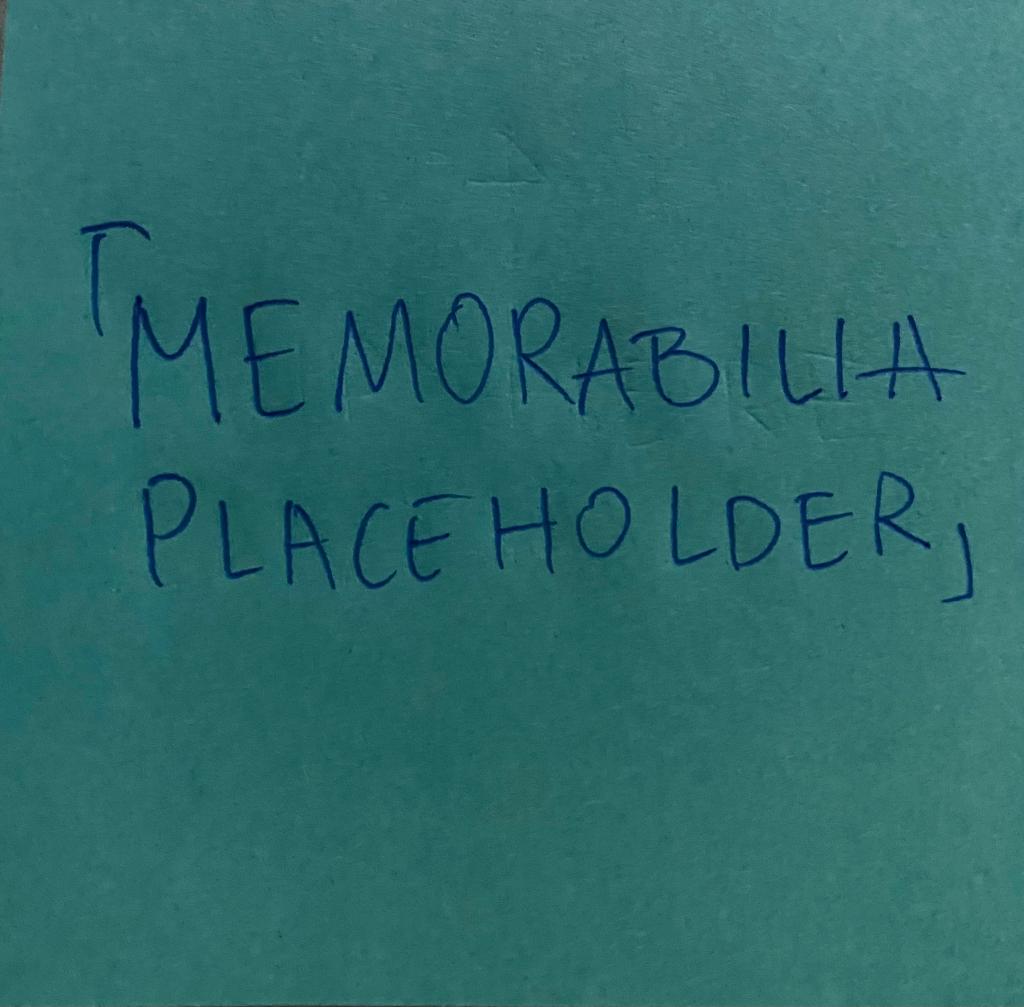 「MEMORABILIA
PLACEHOLDER」